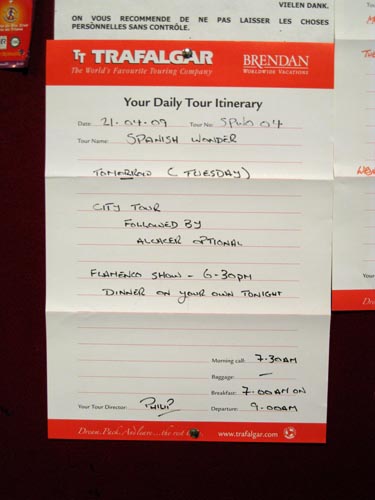 VIELEN DANK.
ON VOUS RECOMMENDE DE NE PAS LAISSER LES CHOSES
PERSÒNNELLES SANS CONTRÔLE.
TT TRAFALGAR
The World's Favourite Touring Company
BRENDAN
WORLDWIDE VACATIONS
Your Daily Tour Itinerary
Date: 21-04-09 Tour No: SPWO 04
Tour Name: SPANISH WONDER
TOMORROW (TUESDAY)
CITY TOUR
FOLLOWED BY
ALCACER OPTIONAL
FLAMENCO SHOW - 6-30PM
DINNER ON YOUR OWN TONIGHT
Morning call: 7-30AM
Baggage: —
Breakfast: 7-00AM ON
Your Tour Director: PHILIP Departure: 9-00AM
Dream. Pack. And leave... the rest
www.trafalgar.com